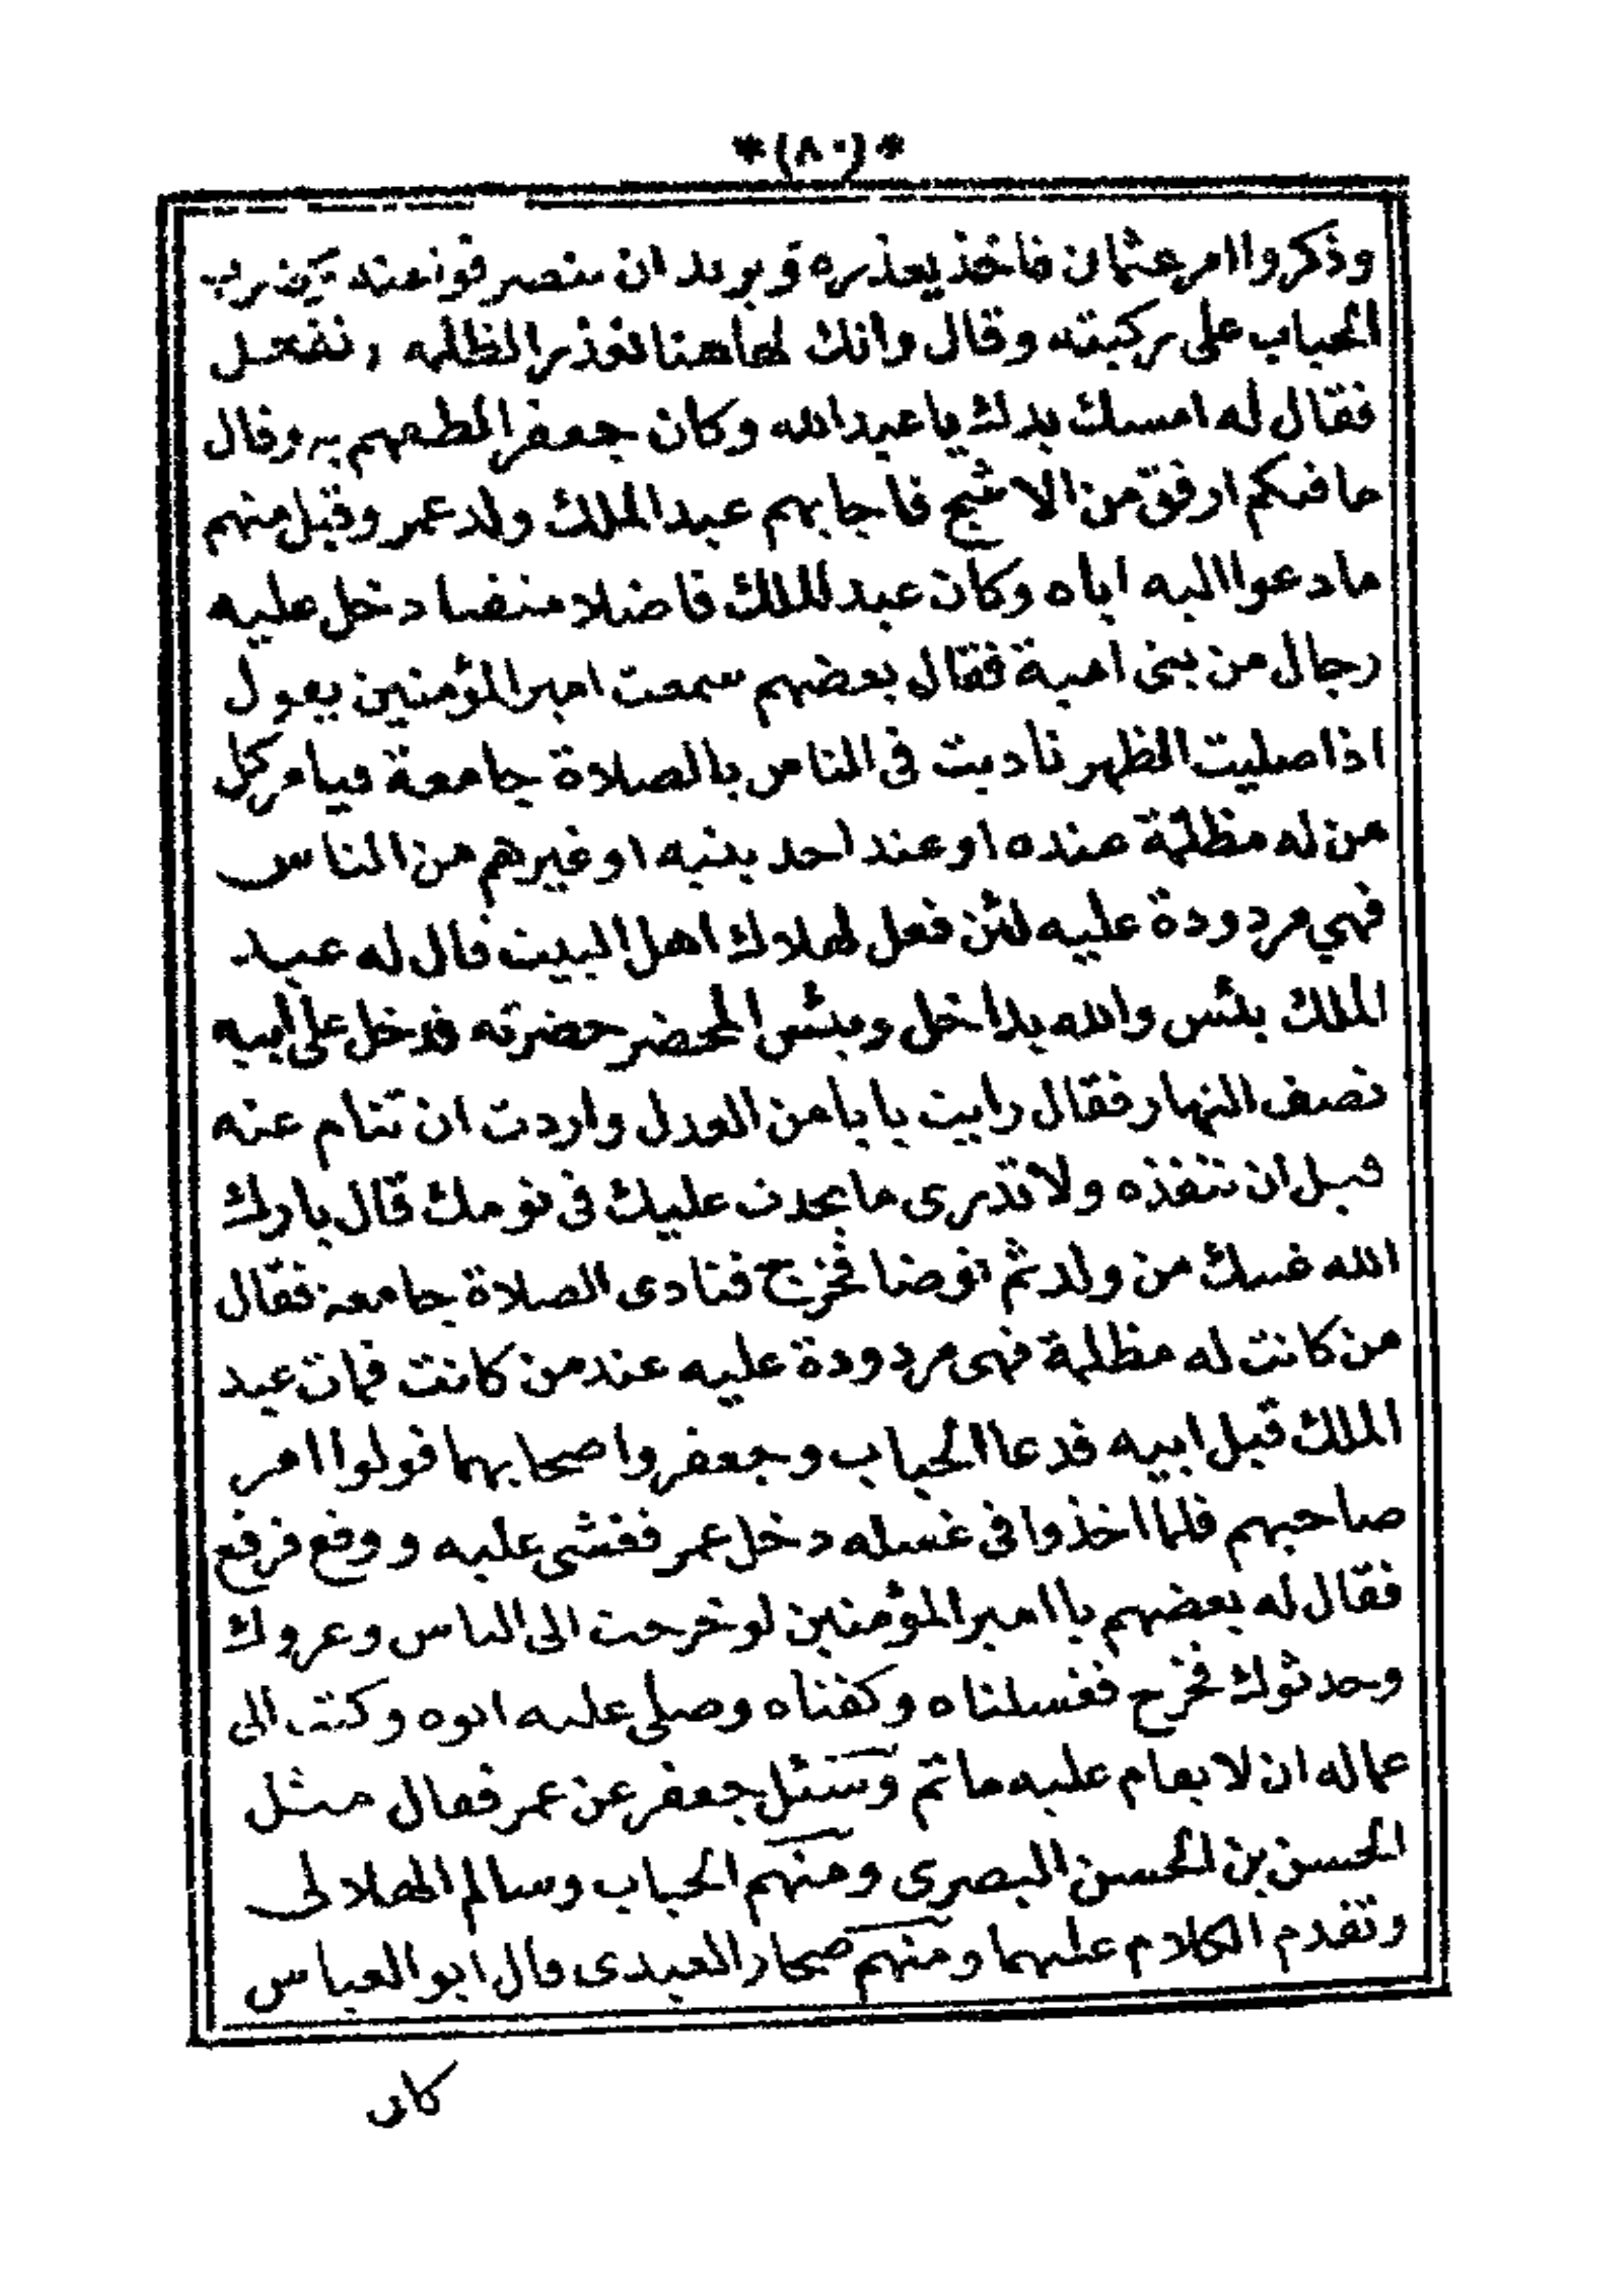 *(٨٠)*
وذكروا امر عثمان فاخذ يعذره ويريد ان ينصرفوا عنه فضرب
الحباب على ركبته وقال وانك لهاهنا تعذر الظلمه
فقال له امسك يدك يا عبدالله وكان جعفر الطفهم به وقال
ما فيكم ارفق من الاشج فاجابهم عبد الملك ولد عمر وقبل منهم
ما دعوا اليه اباه وكان عبد الملك فاضلا منفضا دخل عليه
رجال من بنى امية فقال بعضهم سمعت امير المؤمنين يقول
اذا صليت الظهر ناديت فى الناس بالصلاة جامعة فيامر كل
من له مظلمة عنده او عند احد بنيه او غيرهم من الناس
فهي مردودة عليه لئن فعل لهلاك اهل البيت قال له عبد
الملك بئس والله يداخل وبئس المحضر حضرته فدخل على ابيه
نصف النهار فقال رايت يا بامن العدل واردت ان تنام عنه
قبل ان تنفذه ولا تدرى ما يحدث عليك فى نومك قال بارك
الله فيك من ولد ثم توضا فخرج فنادى الصلاة جامعة فقال
من كانت له مظلمة فهى مردودة عليه عند من كانت فمات عبد
الملك قبل ابيه فدعا الحباب وجعفر واصحابهما فولوا امر
صاحبهم فلما اخذوا فى غسله دخل عمر فغشى عليه ووقع فرفع
فقال له بعضهم يا امير المؤمنين لو خرجت الى الناس وعزوك
وحدثوك فخرج فغسلناه وكفناه وصلى عليه ابوه وكتب الى
عماله ان لا يقام عليه ماتم وسئل جعفر عن عمر فقال مثل
الحسن بن الحسن البصرى ومنهم الحباب وسالم الهلالى
وتقدم الكلام عليهما ومنهم صحار العبدى قال ابو العباس
كان